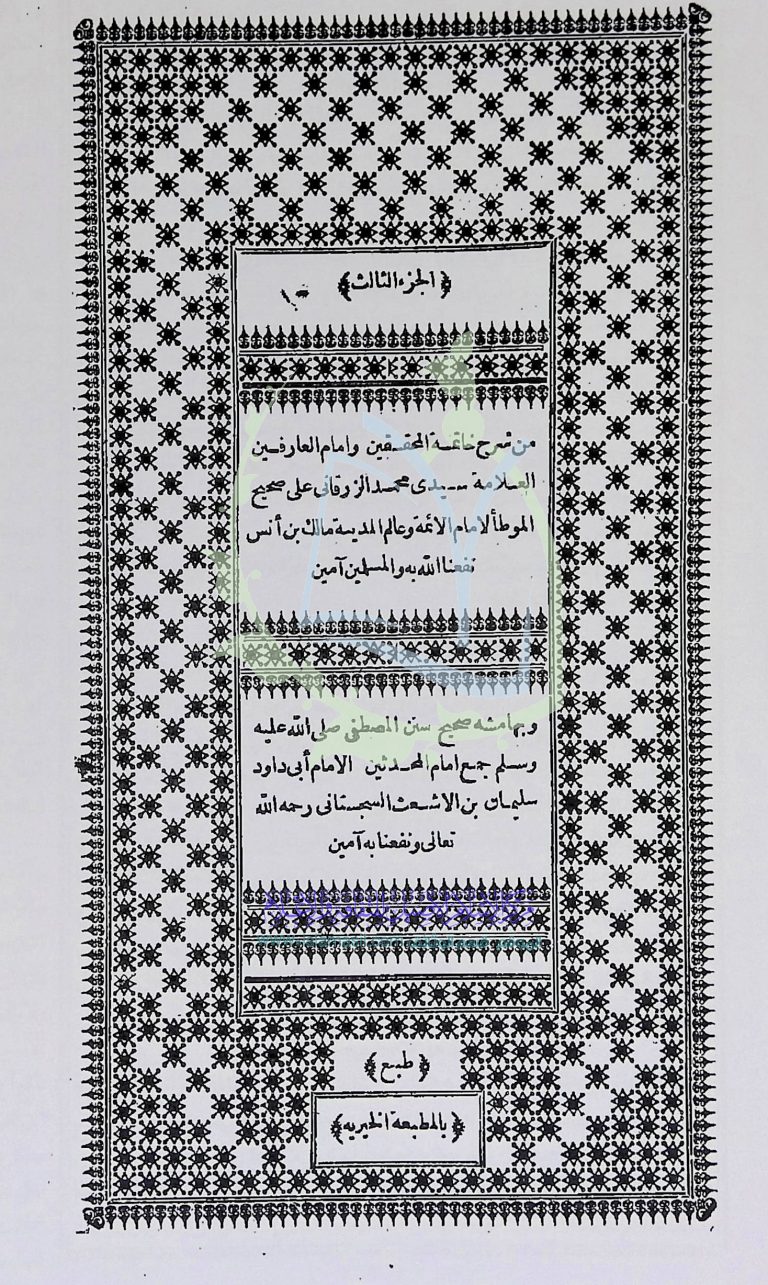 ﴿الجزء الثالث﴾
من شرح خاتمة المحققين وامام العارفين
العلامة سيدى محمد الزرقانى على صحيح
الموطأ لامام الائمة وعالم المدينة مالك بن أنس
نفعنا الله به والمسلمين آمين
وبهامشه صحيح سنن المصطفى صلى الله عليه
وسلم جمع امام المحدثين الامام أبى داود
سليمان بن الاشعث السجستانى رحمه الله
تعالى ونفعنا به آمين
﴿طبع﴾
﴿بالمطبعة الخيريه﴾